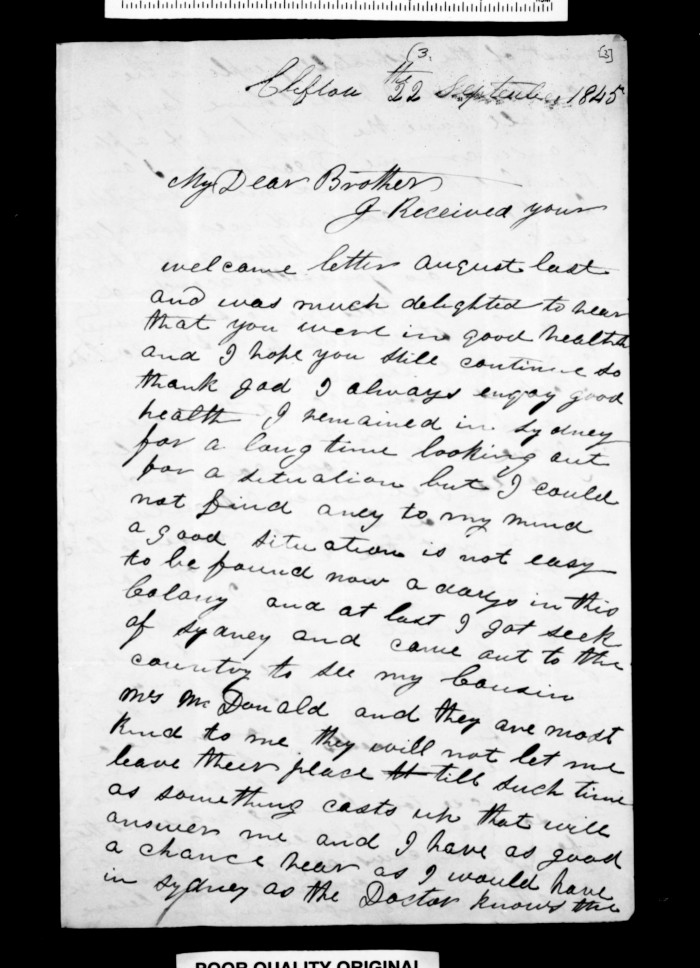 (3.
[3]
Clifton 22th September 1845
My Dear Brother
I Received your
welcome letter august last
and was much delighted to hear
that you were in good health
and I hope you still continue so
thank god I always enjoy good
health I remained in sydney
for a long time looking out
for a situation but I could
not find aney to my mind
a good situation is not easy
to be found now a days in this
Colany and at last I got seek
of sydney and came out to the
country to see my Cousin
Mrs McDonald and they are most
kind to me they will not let me
leave their place tt till such time
as something casts up that will
answer me and I have as good
a chance hear as I would have
in sydney as the Doctor knows the
POOR QUALITY ORIGINAL